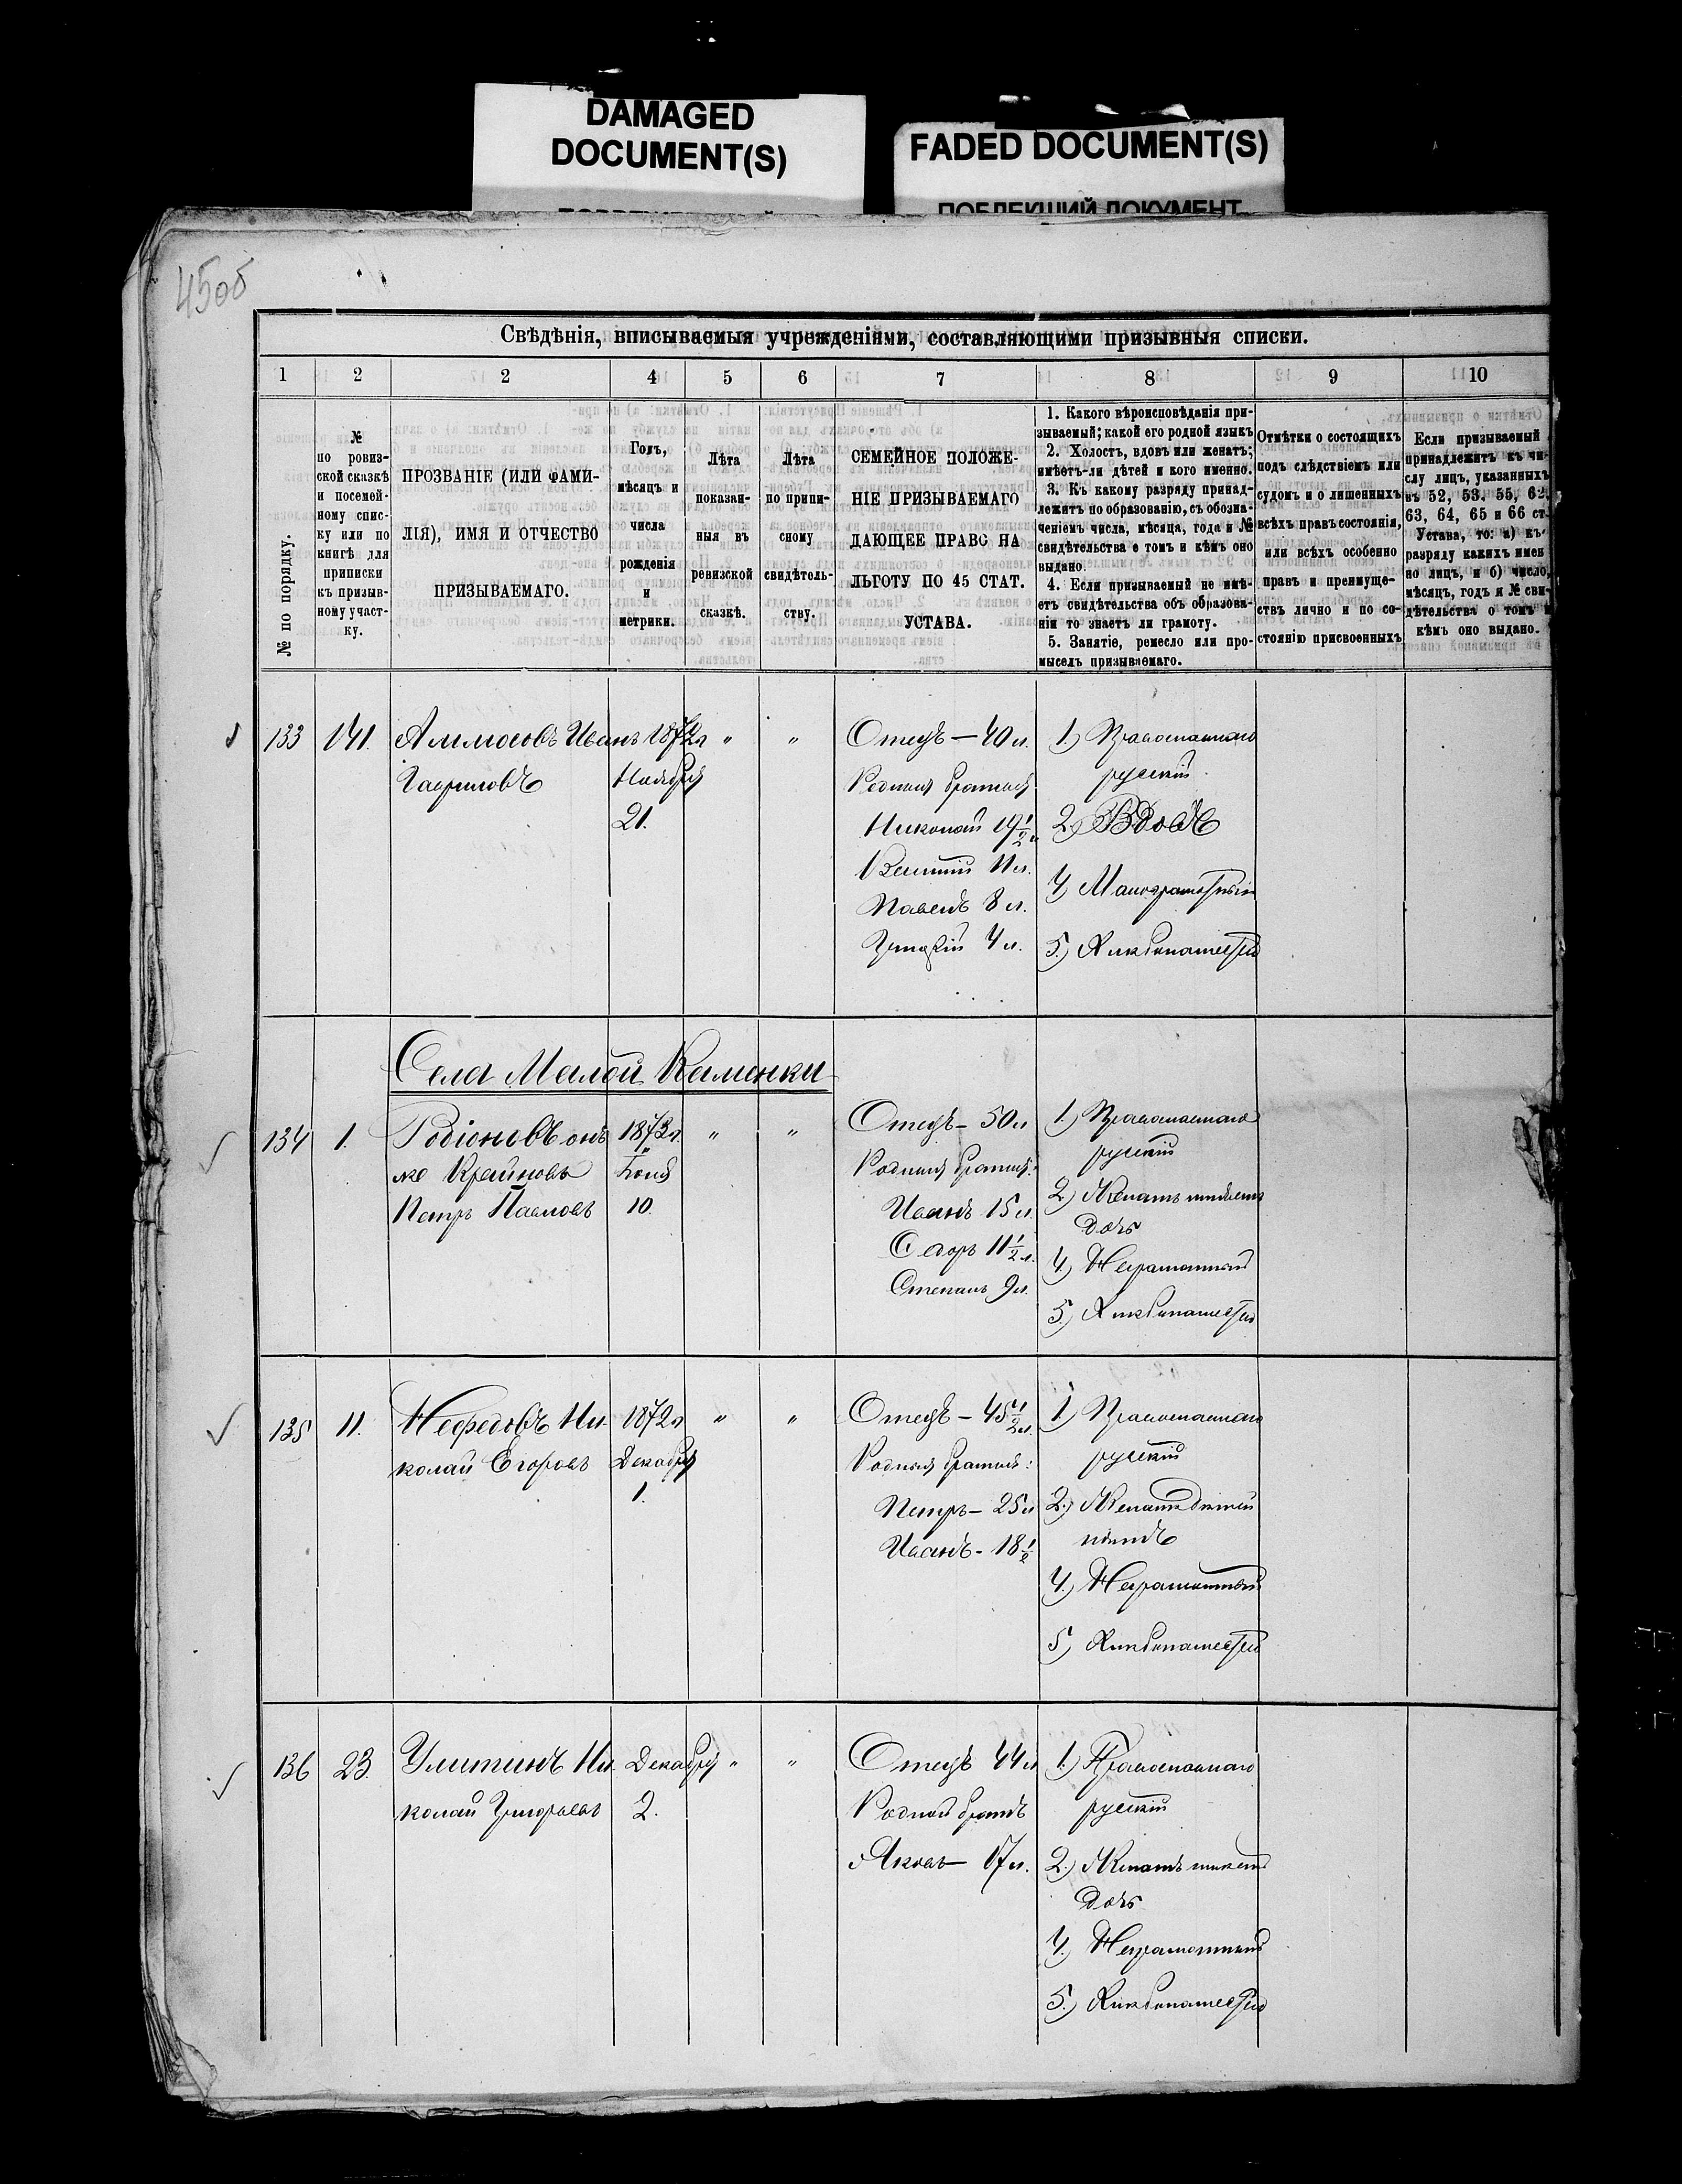 DAMAGED
DOCUMENT(S)
FADED DOCUMENT(S)
ПОБЛЕКШИЙ ДОКУМЕНТ
45об
Свѣдѣнія, вписываемыя учрежденіями, составляющими призывныя списки.
1 2 2 4 5 6 7 8 9 10
№ по порядку.
№
по ревиз-
ской сказкѣ
и посемей-
ному спис-
ку или по
книгѣ для
приписки
къ призыв-
ному участ-
ку.
ПРОЗВАНІЕ (ИЛИ ФАМИ-
ЛІЯ), ИМЯ И ОТЧЕСТВО
ПРИЗЫВАЕМАГО.
Годъ,
мѣсяцъ и
числа
рожденія
и
метрики.
Лѣта
показан-
ныя въ
ревизской
сказкѣ.
Лѣта
по припи-
сному
свидѣтель-
ству.
СЕМЕЙНОЕ ПОЛОЖЕ-
НІЕ ПРИЗЫВАЕМАГО
ДАЮЩЕЕ ПРАВО НА
ЛЬГОТУ ПО 45 СТАТ.
УСТАВА.
1. Какого вѣроисповѣданія при-
зываемый; какой его родной языкъ
2. Холостъ, вдовъ или женатъ;
имѣетъ-ли дѣтей и кого именно.
3. Къ какому разряду принад-
лежитъ по образованію, съ обозна-
ченіемъ числа, мѣсяца, года и №
свидѣтельства о томъ и кѣмъ оно
выдано.
4. Если призываемый не имѣ-
етъ свидѣтельства объ образова-
ніи то знаетъ ли грамоту.
5. Занятіе, ремесло или про-
мыселъ призываемаго.
Отмѣтки о состоящихъ
подъ слѣдствіемъ или
судомъ и о лишенныхъ
всѣхъ правъ состоянія,
или всѣхъ особенно
правъ и преимуще-
ствъ лично и по со-
стоянію присвоенныхъ
Если призываемый
принадлежитъ къ чи-
слу лицъ, указанныхъ
въ 52, 53, 55, 62,
63, 64, 65 и 66 ст.
Устава, то: а) къ
разряду какихъ имен
но лицъ, и б) число,
мѣсяцъ, годъ и № сви-
дѣтельства о томъ и
кѣмъ оно выдано.
133 141. Аммосовъ Иванъ
Гавриловъ
1872 г
Ноября
21.
" "
Отецъ — 40 л.
Родныя братья
Николай 19 1/2 л
Василій 11 л.
Павелъ 8 л.
4 л.
1.) Православнаго
русскій
2.) Вдовъ
4) Малограмотный
5.) Хлѣбопашество
Села Малой Каменки
134 1. Родіоновъ онъ
же Крайновъ
Петръ Павловъ
1873 г.
Іюня
10.
" "
Отецъ — 50 л
Родныя братья:
Иванъ 15 л.
Ѳедоръ 11 1/2 л.
Степанъ 9 л.
1.) Православнаго
русскій
2.) Женатъ имѣетъ
дочь
4.) Неграмотный
5.) Хлѣбопашество
135 11. Нефедовъ Ни-
колай Егоровъ
1872 г
Декабря
1.
" "
Отецъ — 45 1/2 л.
Родныя братья:
Петръ — 25 л
Иванъ - 18 1/2
1.) Православнаго
русскій
2.) Женатъ дѣтей
нѣтъ
4.) Неграмотный
5) Хлѣбопашество
136 23. Улитинъ Ни
колай Григорьевъ
Декабря
2.
" "
Отецъ 44 л
Родной братъ
Яковъ — 17 л.
1.) Православнаго
русскій
2.) Женатъ имѣетъ
дочь
4.) Неграмотный
5.) Хлѣбопашество